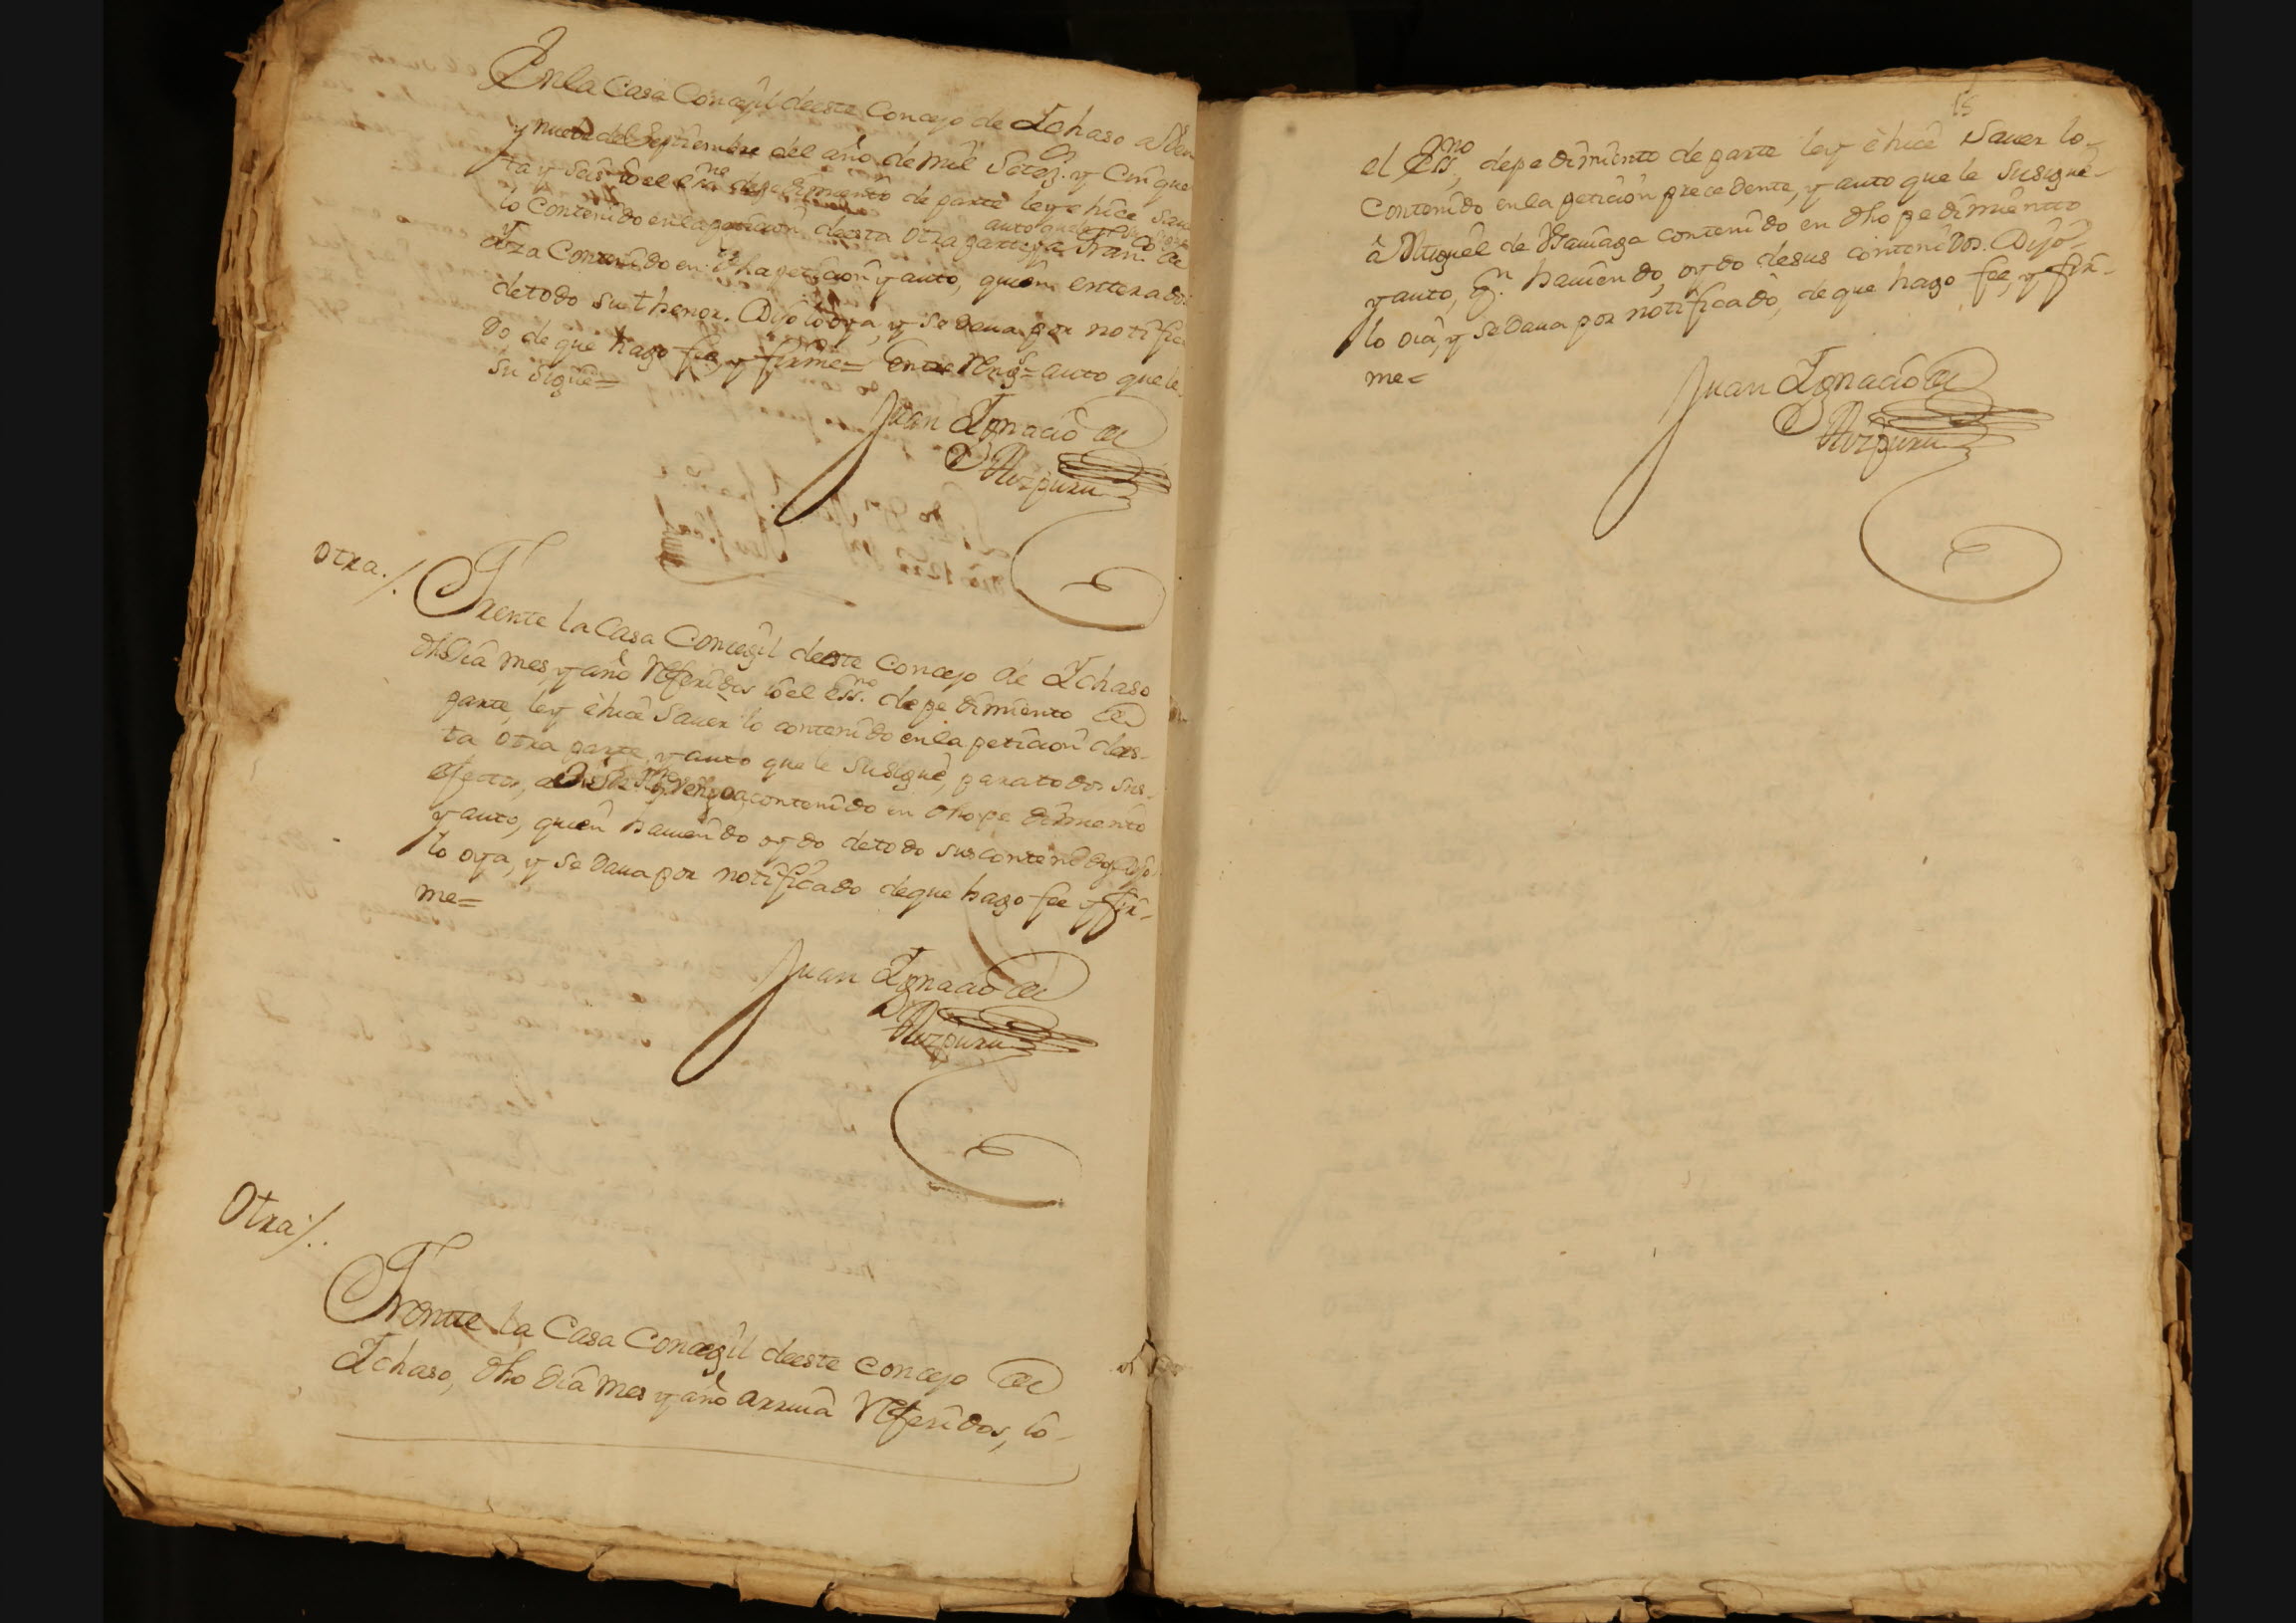 En la Casa Concejil deeste Concejo de Ychaso a Vein
y nuebe del Septiembre del año de mil Setez.s y Cinque
ta y Seis Yo el Ess.no de pedimiento de parte ley e hice Saver
lo Contenido en la peticion deesta Otra parte, y auto que le su sigue a Fran.co de
Yza Contenido en dha peticion y auto, quien enterado
de todo su thenor. Dijo lo oya, y se dava por notifica
do, de que hago fee, y firme= Entre Reng.s= auto que le
su sigue=
Juan Ygnacio de
Aizpuru
Otra./.
Frente la Casa Concejil deeste Concejo de Ychaso
dho Dia mes, y año Referidos Yo el Ess.no de pedimiento de
parte, ley è hice Saver lo contenido en la peticion dees-
ta otra parte, y auto que le susigue, para todos sus
efectos, a contenido en dho pedimiento
y auto, quien haviendo oydo de todo sus contenidos Dijo
lo oya, y se dava por notificado de que hago fee y fir-
me=
Juan Ygnacio de
Aizpuru
Otra./.
Frente la Casa Concejil deeste Concejo de
Ychaso, dho dia mes y año arriva Referidos, Yo
15
el Ess.no, de pedimiento de parte ley è hice Saver lo-
Contenido en la peticion precedente, y auto que le susigue-
â Miguel de contenido en dho pedimiento
y auto, q.n haviendo, oydo de sus contenidos. Dijo
lo oia, y se dava por notificado, de que hago fee, y fir-
me=
Juan Ygnacio de
Aizpuru